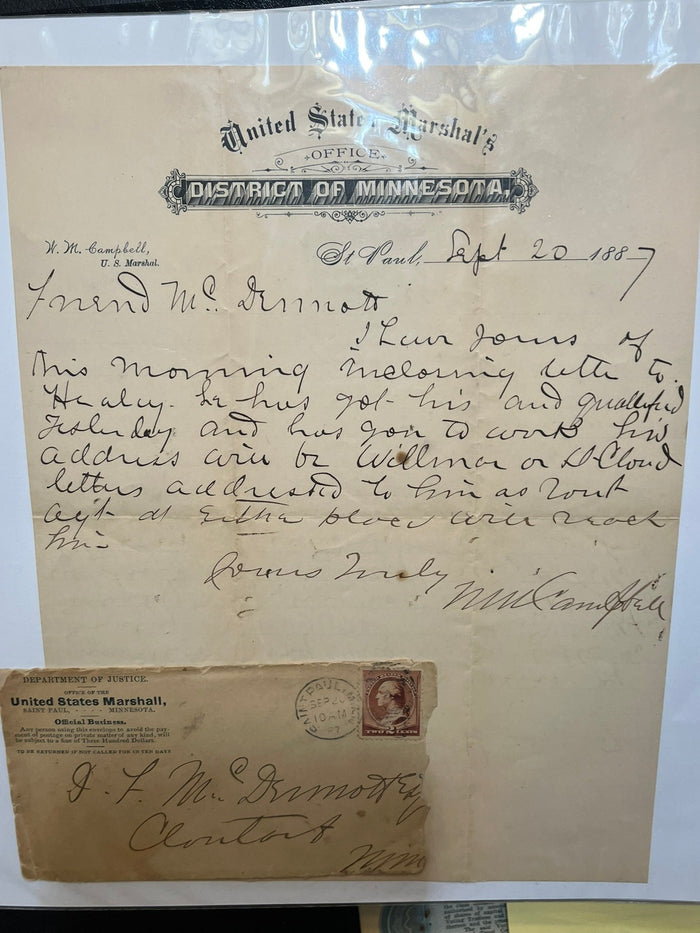 United States Marshal's
OFFICE
DISTRICT OF MINNESOTA.
W. M. Campbell,
U. S. Marshal.
St Paul, Sept 20 1887
Friend McDermott
I have yours of
this morning inclosing letter to
Healey. he has got his and qualified
Yesterday and has gon to work his
address will be Willmar or St Cloud
letters addressed to him as
agt at Either place will reach
him
Yours Truly
Wm Campbell
DEPARTMENT OF JUSTICE.
OFFICE OF THE
United States Marshall,
SAINT PAUL, - - - - MINNESOTA.
Official Business.
Any person using this envelope to avoid the pay-
ment of postage on private matter of any kind, will
be subject to a fine of Three Hundred Dollars.
TO BE RETURNED IF NOT CALLED FOR IN TEN DAYS
SAINT PAUL, MINN.
SEP 20
10 AM
87
TWO 2 CENTS
D. F. McDermott Esq
Clontarf
Minn